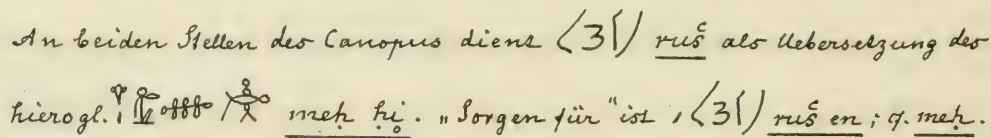 An beiden Stellen des Canopus dient ruš als Uebersetzung des
hierogl. meḥ ḥi. „Sorgen für" ist ruš en; cf. meḥ.